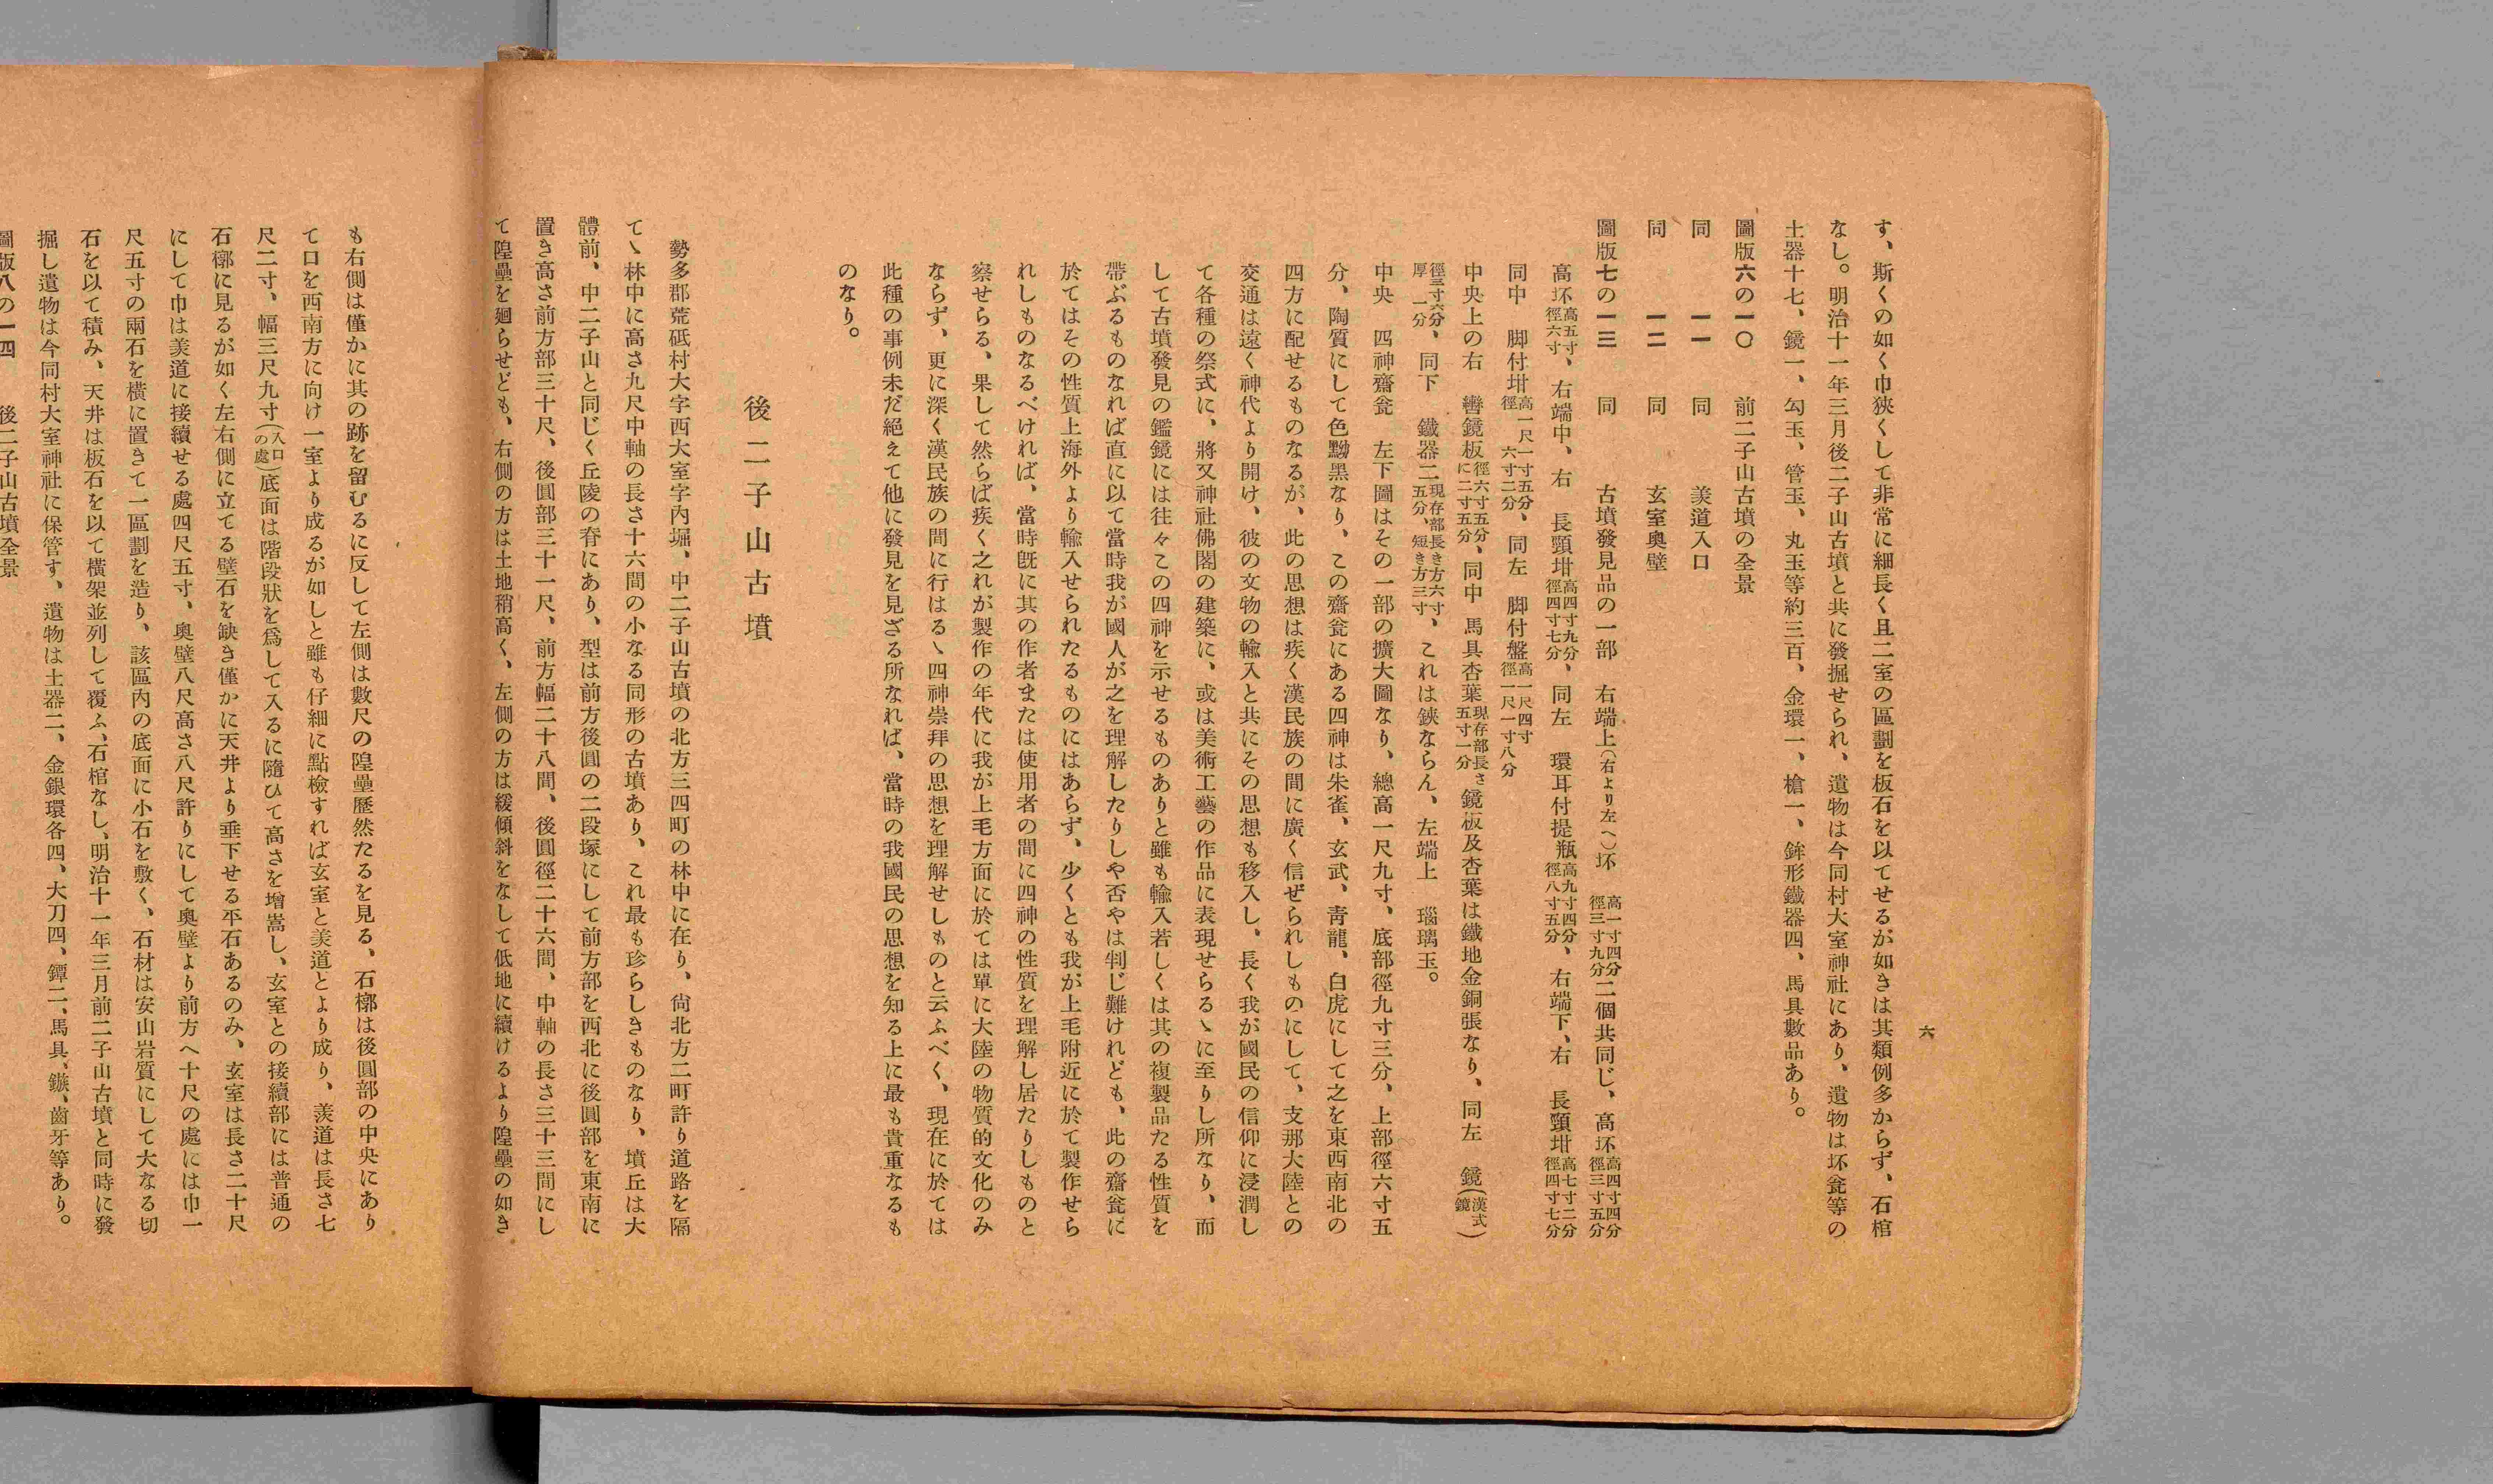 六
す、斯くの如く巾狹くして非常に細長く且二室の區劃を板石を以てせるが如きは其類例多からず、石棺
なし。明治十一年三月後二子山古墳と共に發掘せられ、遺物は今同村大室神社にあり、遺物は坏瓮等の
土器十七、鏡一、勾玉、管玉、丸玉等約三百、金環一、槍一、鉾形鐵器四、馬具數品あり。
圖版六の一〇 前二子山古墳の全景
同 一一 同 羨道入口
同 一二 同 玄室奧壁
圖版七の一三 同 古墳發見品の一部 右端上(右より左へ)坏 高一寸四分徑三寸九分二個共同じ、高坏高四寸四分徑三寸五分
高坏高五寸徑六寸、右端中、右 長頸坩高四寸九分徑四寸七分、同左 環耳付提瓶高九寸四分徑八寸五分、右端下、右 長頸坩高七寸二分徑四寸七分
同中 脚付坩高一尺一寸五分徑六寸二分、同左 脚付盤高一尺四寸徑一尺一寸八分
中央上の右 轡鏡板徑六寸五分に二寸五分、同中 馬具杏葉現存部長さ五寸一分鏡板及杏葉は鐵地金銅張なり、同左 鏡(漢式鏡)
徑三寸六分厚一分、同下 鐵器二現存部長き方六寸五分、短き方三寸、これは鋏ならん、左端上 瑙璃玉。
中央 四神齋瓮 左下圖はその一部の擴大圖なり、總高一尺九寸、底部徑九寸三分、上部徑六寸五
分、陶質にして色黝黑なり、この齋瓮にある四神は朱雀、玄武、靑龍、白虎にして之を東西南北の
四方に配せるものなるが、此の思想は疾く漢民族の間に廣く信ぜられしものにして、支那大陸との
交通は遠く神代より開け、彼の文物の輸入と共にその思想も移入し、長く我が國民の信仰に浸潤し
て各種の祭式に、將又神社佛閣の建築に、或は美術工藝の作品に表現せらるゝに至りし所なり、而
して古墳發見の鑑鏡には往々この四神を示せるものありと雖も輸入若しくは其の複製品たる性質を
帶ぶるものなれば直に以て當時我が國人が之を理解したりしや否やは判じ難けれども、此の齋瓮に
於てはその性質上海外より輸入せられたるものにはあらず、少くとも我が上毛附近に於て製作せら
れしものなるべければ、當時旣に其の作者または使用者の間に四神の性質を理解し居たりしものと
察せらる、果して然らば疾く之れが製作の年代に我が上毛方面に於ては單に大陸の物質的文化のみ
ならず、更に深く漢民族の間に行はるゝ四神崇拜の思想を理解せしものと云ふべく、現在に於ては
此種の事例未だ絕えて他に發見を見ざる所なれば、當時の我國民の思想を知る上に最も貴重なるも
のなり。
後二子山古墳
勢多郡荒砥村大字西大室字內堀、中二子山古墳の北方三四町の林中に在り、尙北方二町許り道路を隔
てゝ林中に高さ九尺中軸の長さ十六間の小なる同形の古墳あり、これ最も珍らしきものなり、墳丘は大
體前、中二子山と同じく丘陵の脊にあり、型は前方後圓の二段塚にして前方部を西北に後圓部を東南に
置き高さ前方部三十尺、後圓部三十一尺、前方幅二十八間、後圓徑二十六間、中軸の長さ三十三間にし
て隍壘を廻らせども、右側の方は土地稍高く、左側の方は緩傾斜をなして低地に續けるより隍壘の如き
も右側は僅かに其の跡を留むるに反して左側は數尺の隍壘歷然たるを見る、石槨は後圓部の中央にあり
て口を西南方に向け一室より成るが如しと雖も仔細に點檢すれば玄室と羨道とより成り、羨道は長さ七
尺二寸、幅三尺九寸(入口の處)底面は階段狀を爲して入るに隨ひて高さを增嵩し、玄室との接續部には普通の
石槨に見るが如く左右側に立てる壁石を缺き僅かに天井より垂下せる平石あるのみ、玄室は長さ二十尺
にして巾は羨道に接續せる處四尺五寸、奧壁八尺高さ八尺許りにして奧壁より前方へ十尺の處には巾一
尺五寸の兩石を橫に置きて一區劃を造り、該區內の底面に小石を敷く、石材は安山岩質にして大なる切
石を以て積み、天井は板石を以て橫架並列して覆ふ、石棺なし、明治十一年三月前二子山古墳と同時に發
掘し遺物は今同村大室神社に保管す、遺物は土器二、金銀環各四、大刀四、鐔二、馬具、鏃、齒牙等あり。
圖版八の一四 後二子山古墳全景